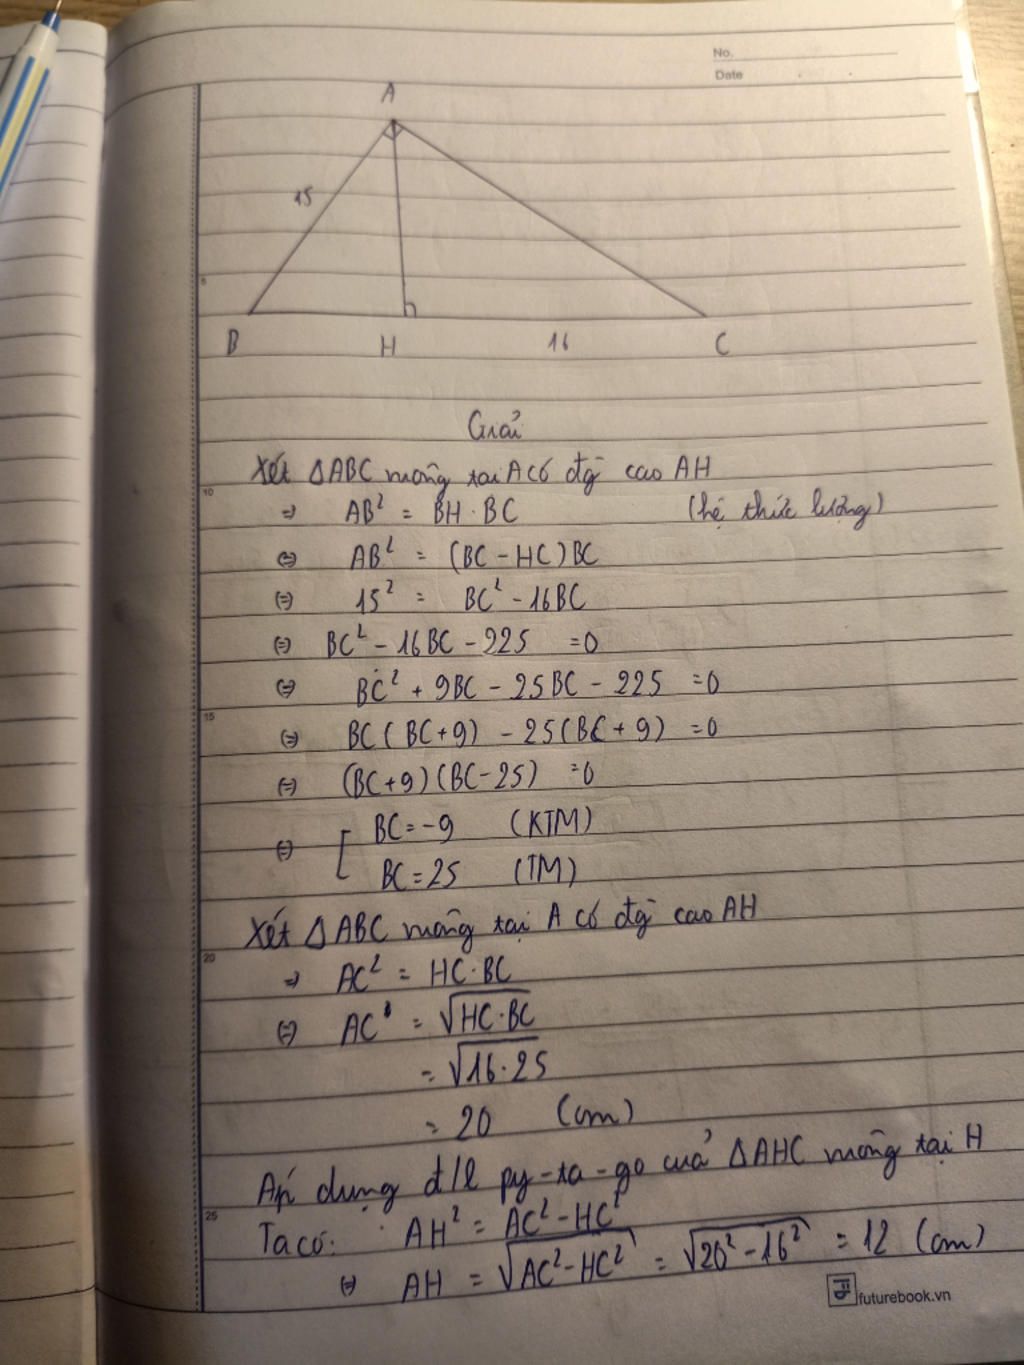 No.
Date
A
15
5
B H 16 C
Giải
Xét ΔABC vuông tại A có đg cao AH
10
=> AB² = BH · BC (hệ thức lượng)
<=> AB² = (BC - HC)BC
<=> 15² = BC² - 16BC
<=> BC² - 16BC - 225 = 0
<=> BC² + 9BC - 25BC - 225 = 0
15
<=> BC(BC+9) - 25(BC+9) = 0
<=> (BC+9)(BC-25) = 0
<=> [ BC = -9 (KTM)
BC = 25 (TM)
Xét ΔABC vuông tại A có đg cao AH
20
=> AC² = HC · BC
<=> AC = √HC · BC
= √16 · 25
= 20 (cm)
Áp dụng đ/l py-ta-go của ΔAHC vuông tại H
25
Ta có: AH² = AC² - HC²
<=> AH = √AC² - HC² = √20² - 16² = 12 (cm)
futurebook.vn